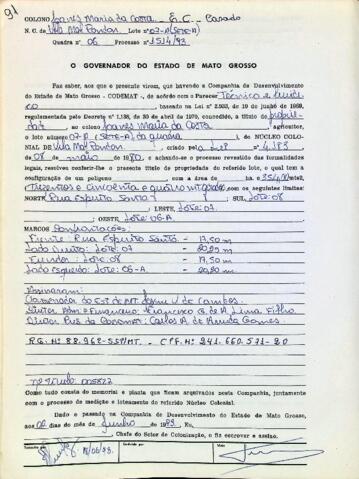 91
COLONO Joares Maria da Costa E.C. Casado
N. C. de Vila Mal Rondon Lote nº 07-A (SETE-A)
Quadra nº 06 Processo nº 1514/93
O GOVERNADOR DO ESTADO DE MATO GROSSO
Faz saber, aos que o presente virem, que havendo a Companhia de Desenvolvimento
do Estado de Mato Grosso - CODEMAT -, de acordo com o Parecer Técnico e Jurídi
co, baseado na Lei nº 2.933, de 19 de junho de 1969,
regulamentada pelo Decreto nº 1.138, de 30 de abril de 1970, concedido, a título de
ao colono Joares Maria da Costa, agricultor,
o lote número 07-A (SETE-A) da quadra, do NÚCLEO COLO-
NIAL de Vila Mal Rondon, criado pela Lei nº 4.183
de 08 de maio 1980, e achando-se o processo revestido das formalidades
legais, resolveu conferir-lhe o presente título de propriedade do referido lote, o qual tem a
configuração de um polígono com a área de 354,00 m²,
Trezentos e Cinquenta e quatro com os seguintes limites:
NORTE, Rua Espírito Santo; SUL, Lote: 08
; LESTE, Lote: 07.
; OESTE, Lote: 06-A.
MARCOS Confrontações:
Frente: Rua Espírito Santo - 17,50 m
Lado Direito: Lote: 07 - 20,20 m
Fundos: Lote: 08 - 17,50 m
Lado esquerdo: Lote: 06-A - 20,20 m
Assinaram:
Governador do Est de MT. Jayme V. de Campos.
Diretor Adm e Financeiro: Francisco G. de A. Lima Filho
Diretor Pres. da Codemat: Carlos A. de Gomes.
R.G. Nº 88.968-SSP/MT. - CPF. Nº 241.660.571-20
Nº Título
Como tudo consta do memorial e planta que ficam arquivados nesta Companhia, juntamente
com o processo de medição e loteamento do referido Núcleo Colonial.
Dado e passado na Companhia de Desenvolvimento do Estado de Mato Grosso,
aos de Junho de 1993. Eu,
, Chefe do Setor de Colonização, o fiz escrever e assino.